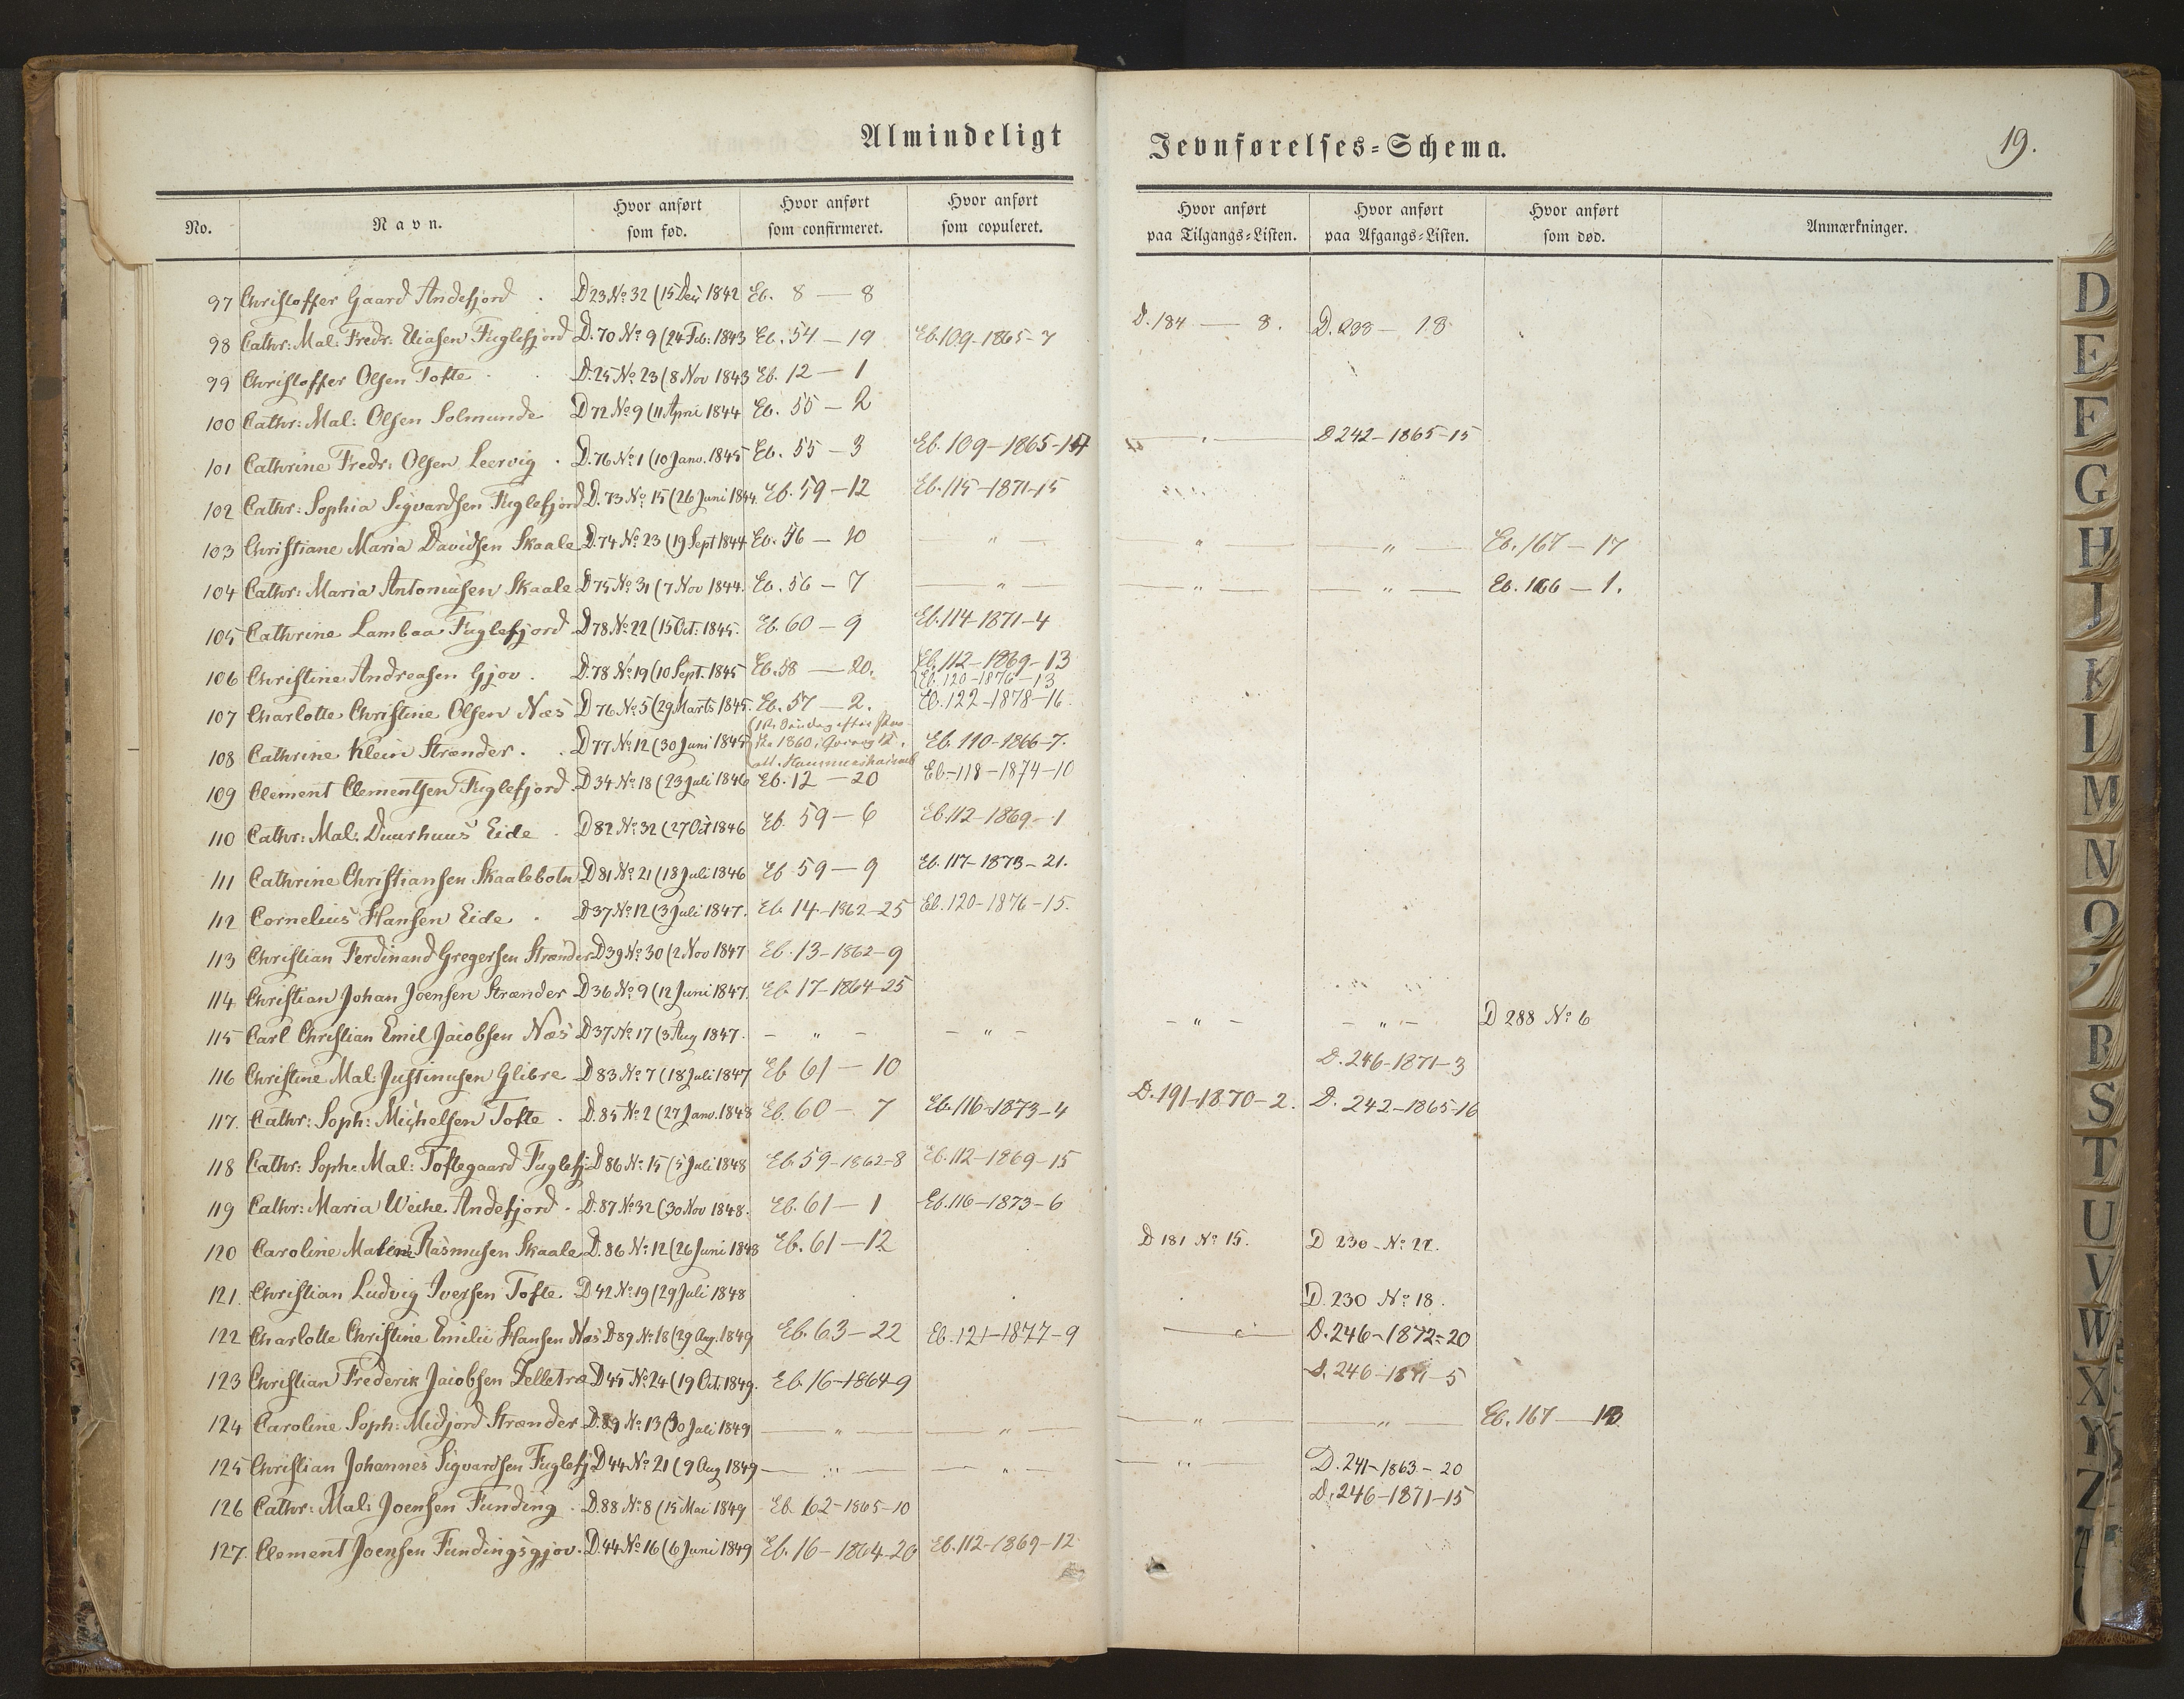 Almindeligt Jevnførelses=Schema. 19.
No. Navn. Hvor anført som fød. Hvor anført som confirmeret. Hvor anført som copuleret. Hvor anført paa Tilgangs=Listen. Hvor anført paa Afgangs=Listen. Hvor anført som død. Anmærkninger.
97 Christoffer Gaard Andefjord . D23 No 32 (15 Dec 1842 Eb. 8 — 8
98 Cathr: Mal: Fredr: Eliasen Fuglefjord D. 70 No 9 (24 Feb: 1843 Eb. 54 — 19 Eb. 109-1865-7 D. 184 — 8. D. 238 — 18
99 Christoffer Olsen Tofte . . D. 25 No 23 (8 Nov 1843 Eb. 12 — 1
100 Cathr: Mal: Olsen Solmunde D72 No 9 (11 April 1844 Eb. 55 — 2
101 Cathrine Fredr: Olsen Leervig . D. 76 No 1 (10 Janv. 1845 Eb. 55 — 3 Eb. 109-1865-14 — " — D 242-1865-15
102 Cathr: Sophia Sigvardsen Fuglefjord D. 73 No 15 (26 Juni 1844 Eb. 59 — 12 Eb. 115-1871-15
103 Christiane Maria Davidsen Skaale D. 74 No 23 (19 Sept 1844 Eb. 56 — 10 — " — — " — — " — Eb. 167 — 17
104 Cathr: Maria Antoniusen Skaale D75 No 31 (7 Nov 1844. Eb. 56 — 7 — " — — " — — " — Eb. 166 — 1.
105 Cathrine Lambaa Fuglefjord D78 No 22 (15 Oct: 1845. Eb. 60 — 9 Eb. 114-1871-4
106 Christine Andreasen Gjov . D. 78 No 19 (10 Sept. 1845 Eb. 58 — 20. Eb. 112-1869-13
Eb. 120-1876-13
107 Charlotte Christine Olsen Næs D 76 No 5 (29 Marts 1845. Eb. 57 — 2. Eb. 122-1878-16.
108 Cathrine Klein Strænder . . D77 No 12 (30 Juni 1845 1860 Eb. 110-1866-7.
109 Clement Clementsen Fuglefjord . D34 No 18 (23 Juli 1846 Eb. 12 — 20 Eb. 118-1874-10
110 Cathr: Mal: Duurhuus Eide . D82 No 32 (27 Oct 1846 Eb. 59 — 6 Eb. 112-1869-1
111 Cathrine Christiansen Skaalebotn D81 No 21 (18 Juli 1846 Eb 59 — 9 Eb. 117-1873-21.
112 Cornelius Hansen Eide . D37 No 12 (3 Juli 1847. Eb. 14-1862-25 Eb. 120-1876-15.
113 Christian Ferdinand Gregersen Strænder D39 No 30 (2 Nov 1847 Eb. 13-1862-9
114 Christian Johan Joensen Strænder D36 No 9 (12 Juni 1847. Eb. 17-1864-25
115 Carl Christian Emil Jacobsen Næs D37 No 17 (3 Aug 1847. — " — — " — — " — — " — D 288 No 6
116 Christine Mal: Justinusen Glibre D83 No 7 (18 Juli 1847 Eb 61 — 10 D. 246-1871-3
117. Cathr: Soph: Michelsen Tofte . D. 85 No 2 (27 Janv. 1848 Eb. 60 — 7 Eb. 116-1873-4 D. 191-1870-2. D. 242-1865-16
118 Cathr: Soph: Mal: Toftegaard Fuglefj D86 No 15 (5 Juli 1848 Eb. 59-1862-8 Eb. 112-1869-15
119 Cathr: Maria Weihe Andefjord . D. 87 No 32 (30 Nov 1848. Eb. 61 — 1 Eb. 116-1873-6
120 Caroline Malene Rasmusen Skaale D. 86 No 12 (26 Juni 1848 Eb. 61 — 12 D 181 No 15. D 230 No 22.
121. Christian Ludvig Iversen Tofte. D42 No 19 (29 Juli 1848 D. 230 No 18.
122 Charlotte Christine Emilie Hansen Næs D89 No 18 (29 Aug. 1849 Eb. 63 — 22 Eb. 121-1877-9 — " — D. 246-1872-20
123 Christian Frederik Jacobsen Selletræ D45 No 24 (19 Oct. 1849. Eb. 16-1864-9 D. 246-1871-5
124 Caroline Soph: Midjord Strænder D. 89 No 13 (30 Juli 1849 — " — — " — — " — — " — Eb. 167 — 13
125 Christian Johannes Sigvardsen Fuglefj D44 No 21 (9 Aug 1849 — " — — " — — " — D. 241-1863-20
126 Cathr: Mal: Joensen Funding . D. 88 No 8 (15 Mai 1849 Eb. 62-1865-10 D. 246-1871-15
127. Clement Joensen Fundingsgjov . D. 44 No 16 (6 Juni 1849 Eb. 16-1864-20 Eb. 112-1869-12
D
E
F
G
H
J
K
L
M
N
O
B
S
T
U
V
W
X
Y
Z